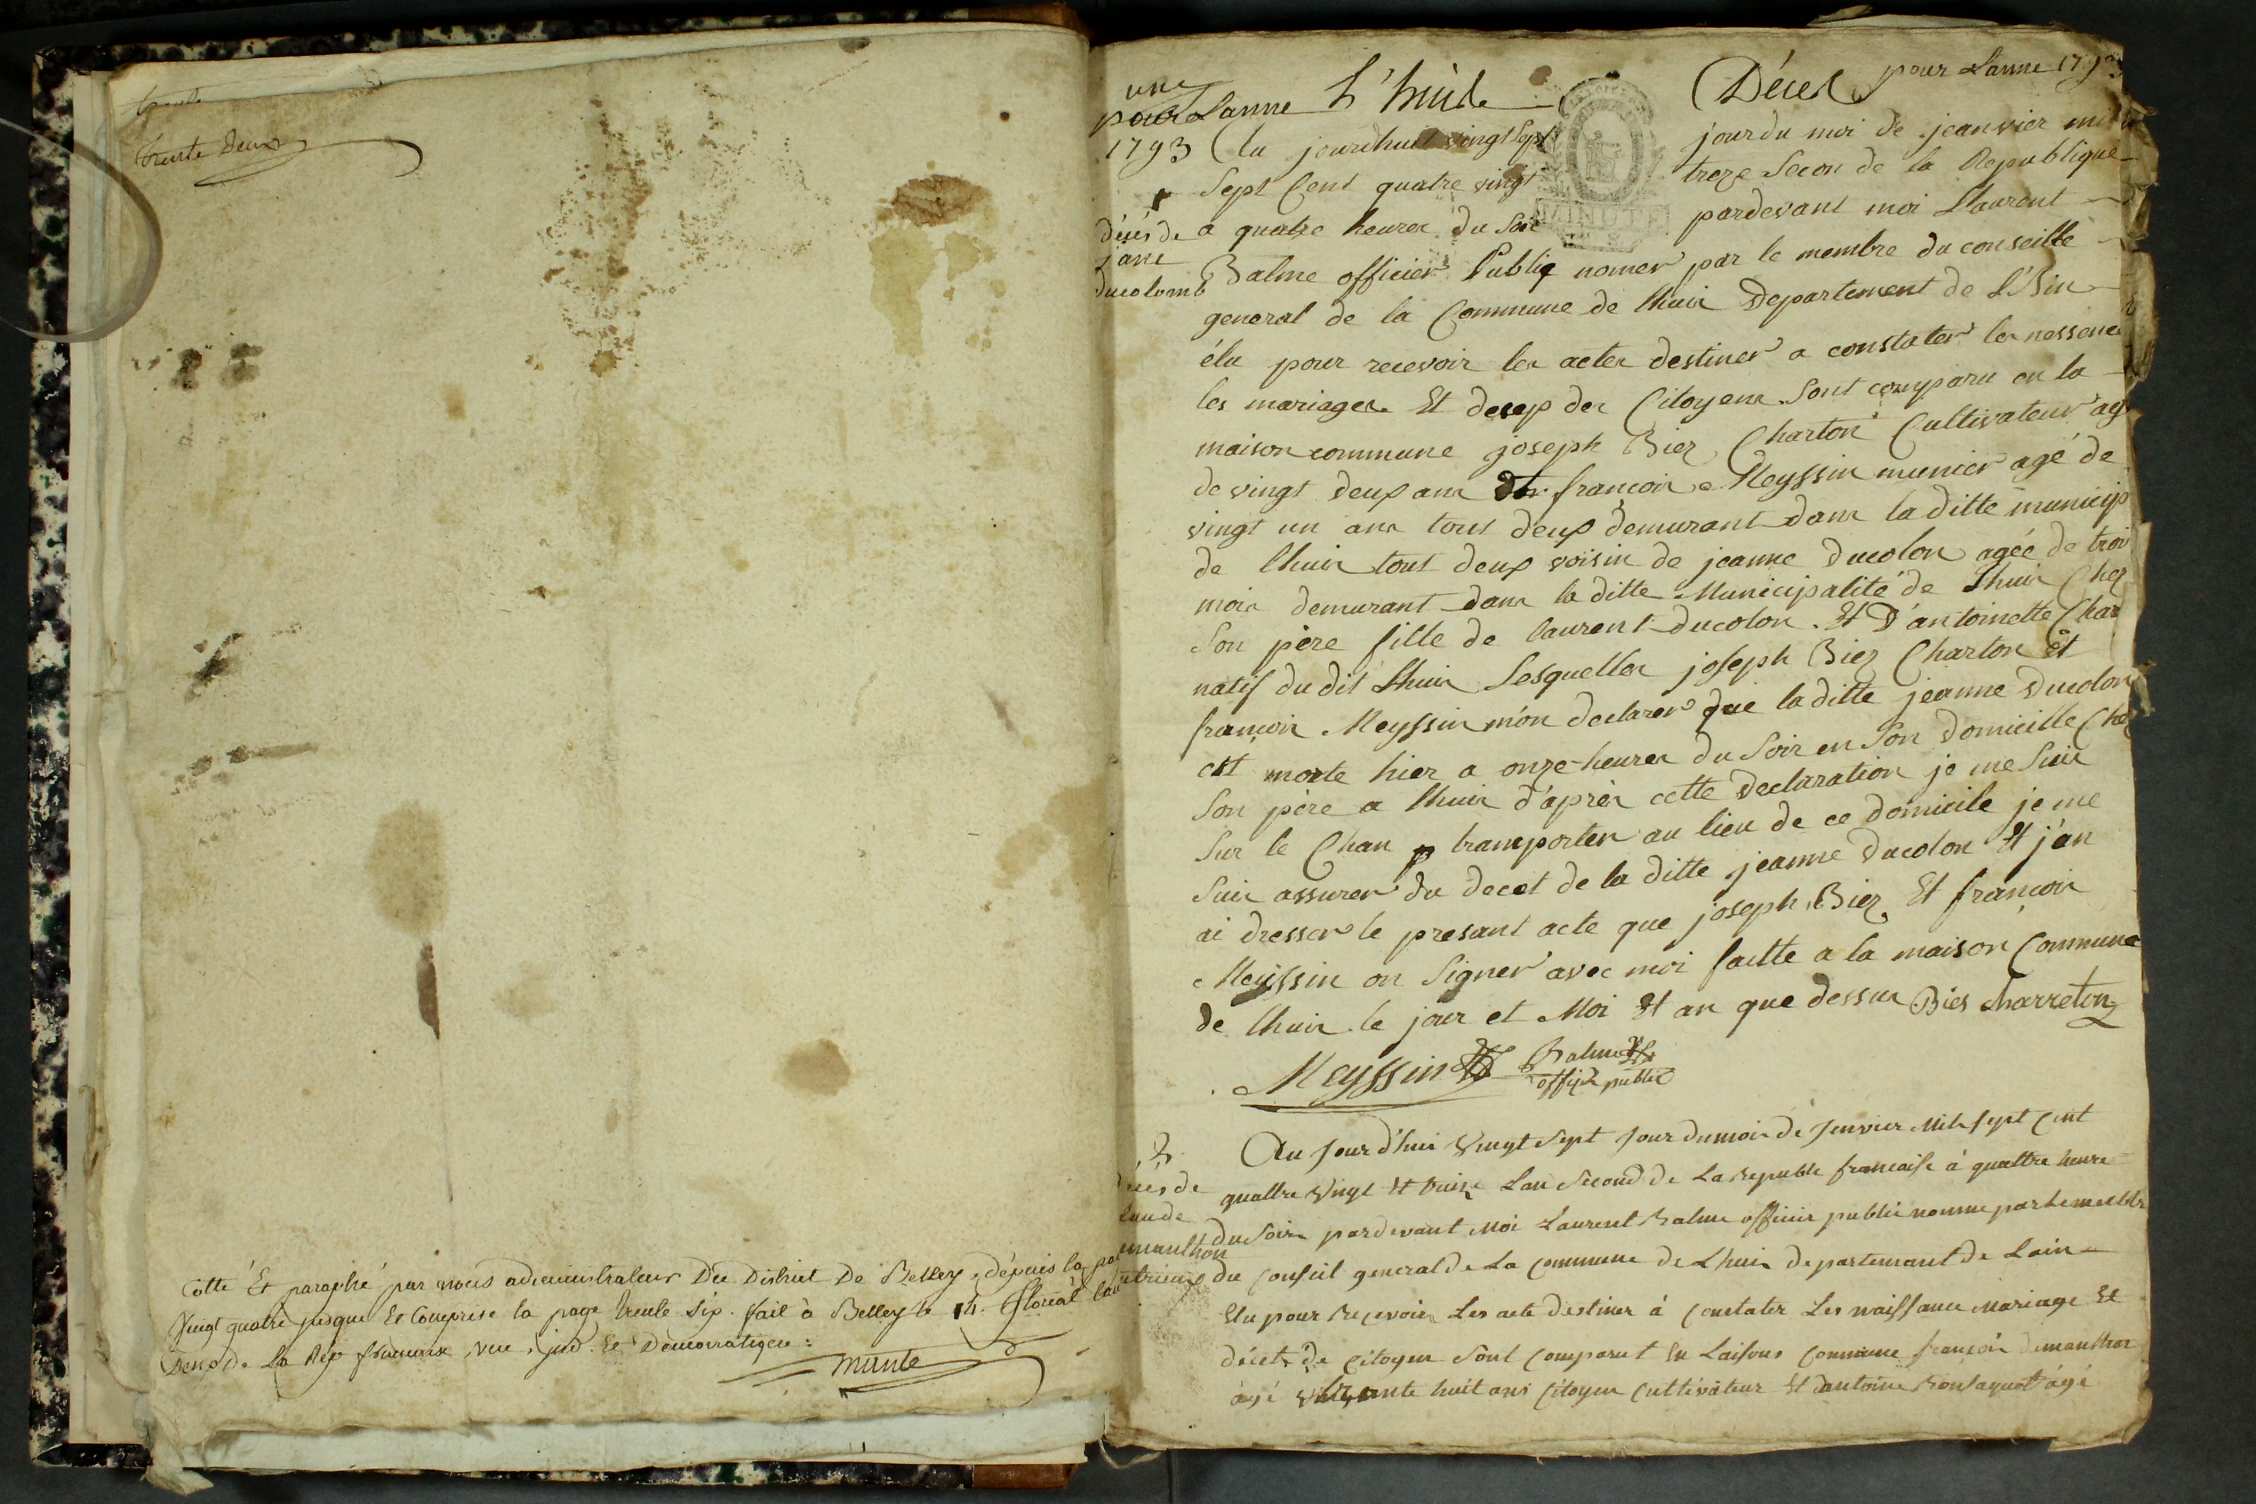 trente deux
Cotté Et paraphé par nous administrateur Du District De Belley, depuis la pa
Vingt quatre jusque Et Comprise la page trente Six. fait à Belley le 14. floreal lan
Deux de La Rep francaise, une, ind. Et Democratique:
une
pour Lanne L'huis Décés pour Lanne 1793
1793 Au jourdhuit vingt Sept jour du moi de jeanvier mil
Sept Cent quatre vingt treze Secon de la Republique
a quatre heures du Soir pardevant moi Laurent
MINUTE
désés de
jane
ducolomb
Balme officier Publiq nomer par le membre du conseille
general de la Commune de lhuis Departement de L'Ain
élu pour recevoir les actes destiner a constater les nessence
les mariages Et decep des Citoyens Sont comparu en la
maison commune joseph Biez Charton Cultivateur ag
de vingt deux ans francois Meyssin munier agé de
vingt un ans tous deux demurant dans la ditte municip
de lhuis tout deux voisin de jeanne ducolon agée de troi
mois demurant dans la ditte Municipalité de Lhuis Chez
Son père fille de laurent ducolon Et D'antoinette Char
natif du dit Lhuis Lesquelles joseph Biez Charton et
francois Meyssin m'on declarer que la ditte jeanne Ducolon
est morte hier a onze heures du Soir en Son Domicille Chez
Son père a lhuis d'après cette declaration je me Suis
Sur le Chan transporter au lieu de ce domicile je me
Suis assurer du decet de la ditte jeanne Ducolon Et j'an
ai dresser le presant acte que joseph Biez Et francois
Meyssin on Signer avec moi faitte a la maison Commune
de lhuis le jour et Moi Et an que dessus Bies charreton
Meyssin Balme
offiçier public
2 Au jourd'hui Vingt Sept jour du mois de Jenvier Mil Sept Cent
décés de quattre Vingt Et treize Lan Second de La republi francaise à quattre heure
du Soir pardevant Moi Laurent Balme officier public nomme par le membre
du Conseil general de La Commune de Lhuis departemant de Lain
Elu pour recevoir Les acte destiner à Constater Les naissance Mariage Et
décet de Citoyen Sont Comparut En Commune françois
àgé huit ans Citoyen Cultivateur Et antoine àgé